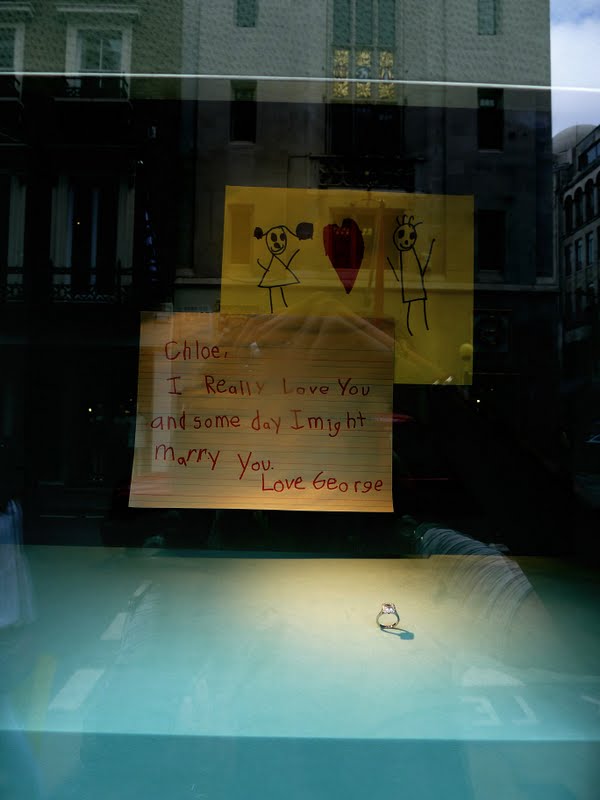 Chloe,
I Really Love You
and some day I might
Marry You.
Love George